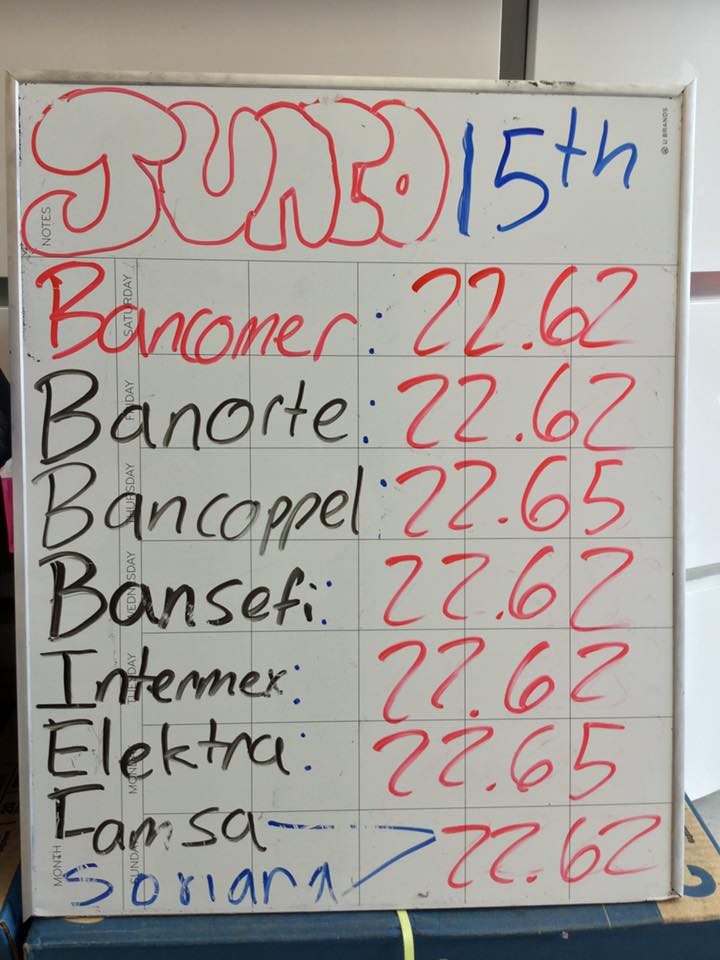 JUNCO 15th
U BRANDS
NOTES
Bancomer: 22.62
SATURDAY
Banorte: 22.62
FRIDAY
Bancoppel: 22.65
THURSDAY
Bansefi: 22.62
WEDNESDAY
Intermex: 22.62
TUESDAY
Elektra: 22.65
MONDAY
Famsa 22.62
Soriana
SUNDAY
MONTH